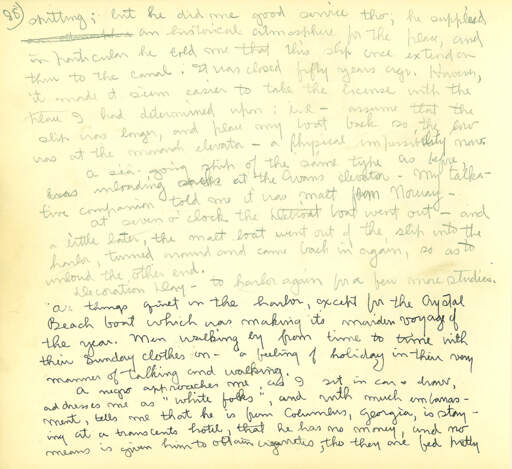 25) spitting; but he did me good service tho; he supplied
an historical atmosphere for the place, and
in particular he told me that this slip once extended
thru to the canal; it was closed fifty years ago. However,
it made it seem easier to take the license with the
place I had determined upon; i.e. - assume that the
slip was longer, and place my boat back so the bow
was at the monarch elevator - a physical impossibility now.
a sea-going ship of the same type as before,
was unloading at the Evans elevator - My talka-
tive companion told me it was malt from Norway -
at seven o'clock the Detroit boat went out - and
a little later, the malt boat went out of the slip into the
harbor, turned around and came back in again, so as to
unload the other end.
Decoration Day - to harbor again for a few more studies.
all things quiet in the harbor, except for the Crystal
Beach boat which was making its maiden voyage of
the year. Men walking by from time to time with
their Sunday clothes on - a feeling of holiday in their very
manner of talking and walking.
A negro approaches me as I sit in car & draw,
addresses me as "white folks", and with much embarrass-
ment, tells me that he is from Columbus, Georgia, is stay-
ing at a transients hotel, that he has no money, and no
means is given him to obtain cigarettes, tho they are fed pretty